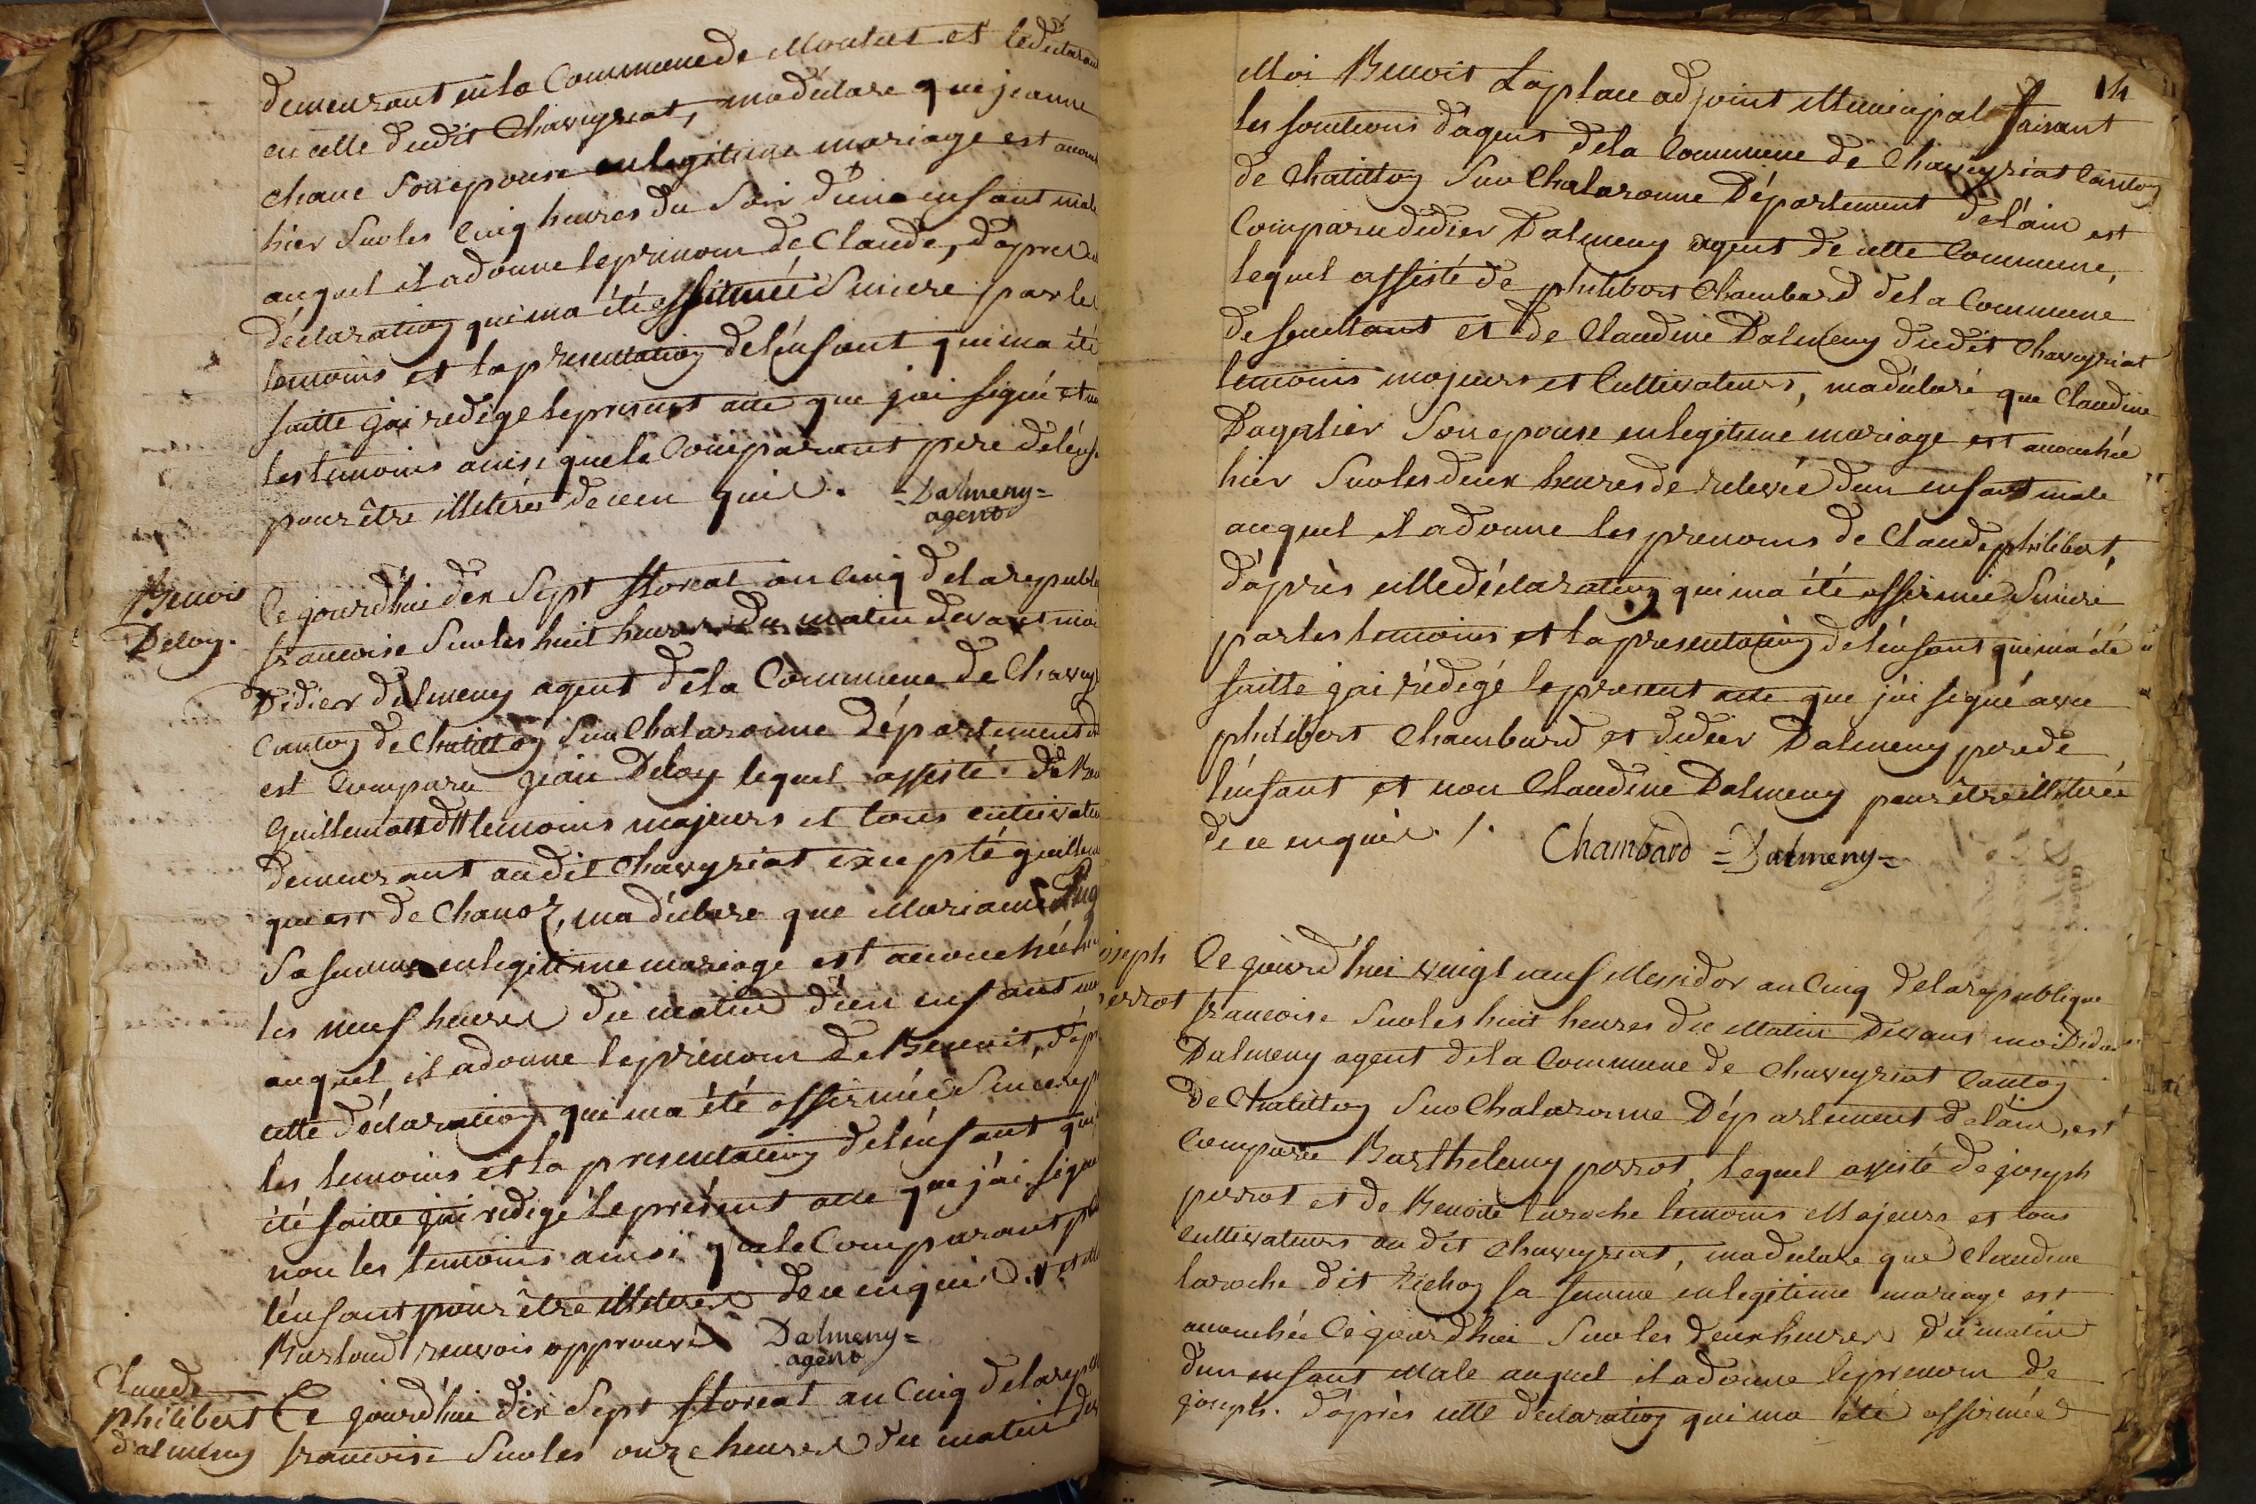 demeurant en la Commune de Montcet et le déclarant
en celle dudit Chaveyriat, ma déclare que jeanne
chane Son epouse en legitime mariage est accou
hier Sur les Cinq heures du Soir d'une enfant male
auquel il a donné le prenom de Claude, d'après
déclaration qui ma été affirmée Sincere par les
temoins et la presentation de lénfant qui ma été
faitte j'ai redigé le present acte que j'ai signé et
les temoins ainsi que le Comparant pere de lénf
pour être illeterés de ce enquis.
=Dalmeny=
agent
Benoit
Deloy.
Ce jourd'hui dix Sept floreal an Cinq de la republi
francoise Sur les huit heures du matin devant moi
Didier dalmeny agent de la Commune de Chavey
Canton de Chatillon Sur Chalaronne Département de
est Comparu jean Deloy lequel assisté de
Guillemot temoins majeurs et tous cultivateu
demeurant audit Chaveyriat excepté guillem
qui est de Chanoz, ma déclare que Mariane
Sa femme en legitime mariage est accouchée hi
les neuf heures du matin d'un enfant ma
auquel il a donné le prenom de Benoit, d'apr
cette déclaration qui ma été affirmée Sincere p
les temoins et la presentation de lénfant qui
été faitte j'ai redigé le présent acte que j'ai signé
non les temoins ainsi que le Comparant p
lénfant pour être illeterés de ce enquis. et de
Burtoud renvois approuvé
Dalmeny=
agent
Claude
philibert
dalmeny
Ce jourd'hui dix Sept floreal an Cinq de la rep
francoise Sur les onze heures du matin dev
14
Moi Benoit Laplace adjoint Municipal faisant
les fonctions d'agent de la Commune de Chaveyriat Canton
de Chatillon Sur Chalaronne Département de l'ain est
Comparu didier Dalmeny agent de cette Commune,
lequel assisté de philibert Chambard de la Commune
de et de Claudine Dalmeny dudit Chaveyriat
temoins majeurs et Cultivateurs, ma déclaré que Claudine
Dagalier Son epouse en legitime mariage est accouchée
hier Sur les deux heures de relevée d'un enfant male
auquel il a donné les prenoms de Claude philibert,
d'après cette déclaration qui ma été affirmée Sincere
par les temoins et la presentation de lénfant qui ma été
faitte j'ai rédigé le present acte que j'ai signé avec
philibert Chambard et didier Dalmeny pere de
lénfant et non Claudine Dalmeny pour être illeterée
de ce enquis. /.
Chambard =Dalmeny=
oseph
perrot
Ce jourd'hui vingt neuf Messidor an Cinq de la republique
francoise Sur les huit heures du Matin Devant moi Didier
Dalmeny agent de la Commune de Chaveyriat Canton
de Chatillon Sur Chalaronne Département de lain, est
Comparu Barthelemy perrot, lequel assisté de joseph
perrot et de Benoite laroche temoins Majeurs et tous
cultivateurs au dit Chaveyriat, ma declare que Claudine
laroche dit Sa femme en legitime mariage est
accouchée Cejourd'hui Sur les deux heures du matin
d'un enfant Male auquel il a donné le prenom de
joseph. d'après cette declaration qui ma été affirmée